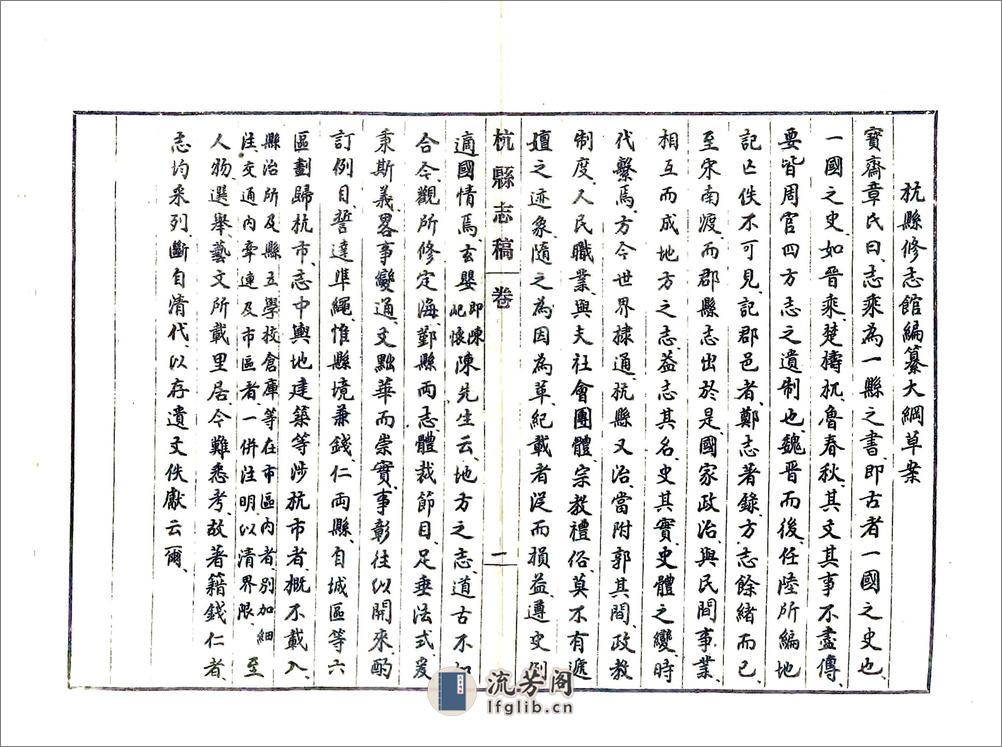 杭縣修志館編纂大綱草案
實齋章氏曰、志乘為一縣之書、即古者一國之史也、
一國之史、如晉乘、楚檮杌、魯春秋、其文其事不盡傳、
要皆周官四方志之遺制也、魏晉而後、任陸所編地
記亡佚不可見、記郡邑者、鄭志著錄、方志餘緒而已、
至宋南渡、而郡縣志出、於是、國家政治、與民間事業、
相互而成地方之志、益志其名、史其實、史體之變、時
代繫焉、方今世界棣通、杭縣又治、當附郭、其間、政教
制度、人民職業、與夫社會團體、宗教禮俗、莫不有遞
嬗之迹象、隨之為因為革、紀載者從而損益、遵史例
杭縣志稿 卷 一
適國情焉、玄嬰即陳屺懷陳先生云、地方之志、道古不如
合今、觀所修定海鄞縣兩志、體裁節目、足垂法式、爰
秉斯義、畧事變通、文黜華而崇實、事彰往以開來、酌
訂例目、誓達準繩、惟縣境兼錢、仁兩縣、自城區等六
區劃歸杭市、志中輿地建築等涉杭市者、概不載入、
縣治所及縣立學校倉庫等在市區內者、別加細
注、交通內牽連及市區者、一併注明、以清界限、至
人物、選舉、藝文、所載里居、今難悉考、故著籍錢仁者、
志均采列、斷自清代、以存遺文佚獻云爾、
流芳阁
lfglib.cn